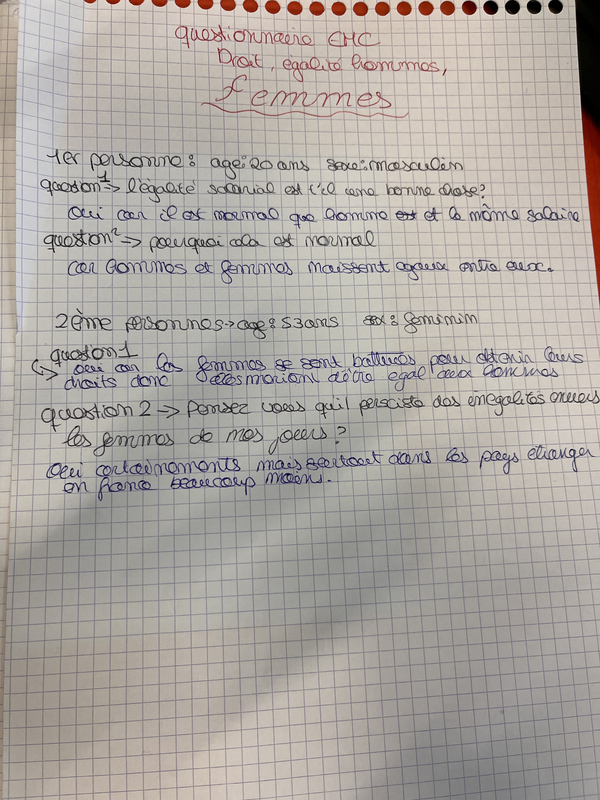 questionnaire EMC
Droit, égalité hommes,
femmes
1er personne : age : 20 ans sexe : masculin
question 1 => l'égalité salarial est t'il une bonne chose ?
Oui car il est normal que homme est et la même salaire
question 2 => pourquoi cela est normal
car hommes et femmes naissent egaux entre eux.
2ème personnes -> age : 53 ans sex : feminim
question 1
↳ oui car les femmes se sont battues pour obtenir leurs
droits donc elles mérient d'être egal aux hommes
question 2 => Pensez vous qu'il perciste des inégalités envers
les femmes de nos jours ?
Oui certainements mais surtout dans les pays étranger
en france beaucoup moins.